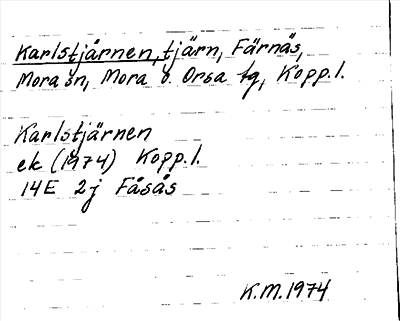 Karlstjärnen, tjärn, Färnäs,
Mora sn, Mora o. Orsa tg, Kopp.l.
Karlstjärnen
ek (1974) Kopp.l.
14E 2j Fåsås
K.M.1974